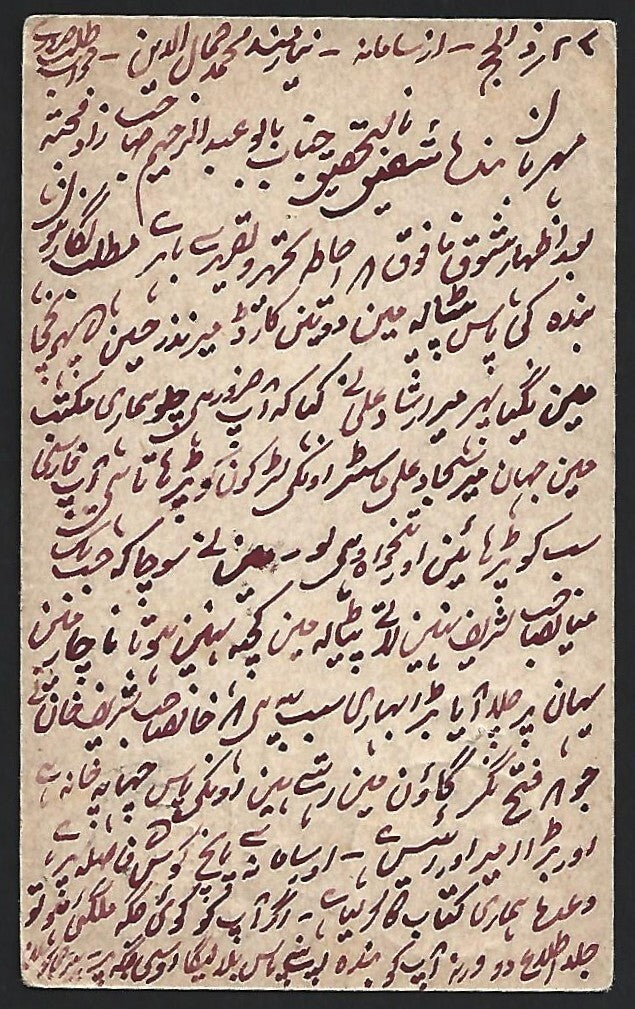 ۲۲ ذوالحج - از سامانہ - نیازمند محمد جمال الدین - جواب طلب ضروری
مہربان بندہا شفیق بالتحقیق جناب بابو عبدالرحیم صاحب زاد محبتہ
بعد اظہار شوق مافوق احاطہ تحریر و تقریر سے باہر مطلب نگار ہوں
بندہ کی پاس پٹیالہ مین دو تین کارڈ میر نذر حسین پہونچا
مین گیا پہر میر ارشاد علی نے کہا کہ آپ ضرور ہی چلو ہماری مکتب
مین جہان میر سجاد علی ماسٹر اونکی لڑکون کو پڑہاتا ہی آپ فارسی
سب کو پڑہائین اور تنخواہ وہی لو - مین نے سوچا کہ جب تک
صاحب تشریف نہین لاتے پٹیالہ مین کچہ نہین ہوتا ناچار مین
یہان پر چلد آیا بڑا بہاری سبب یہ ہی خانصاحب شریف خان
جو فتح نگر گاؤن مین رہتے ہین اونکی پاس چہاپہ خانہ ہے
اور بڑا امیر اور رئیس ہے - اور سامانہ سے پانچ کوس فاصلہ پر ہے
وعدہ ہماری کتاب کا کر لیا ہے - اگر آپ کو کوئی جگہ ملگئی ہو تو
جلد اطلاع دو ورنہ آپ کو بندہ اپنے پاس بلا لیگا اوسی جگہ پر